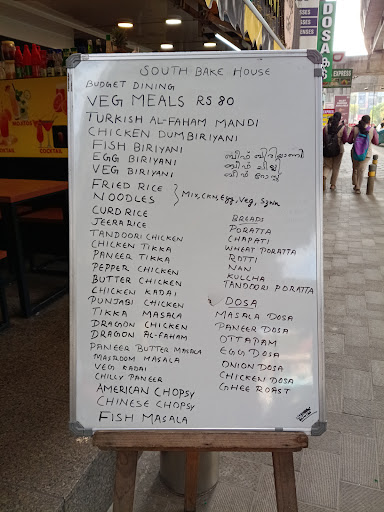 SOUTH BAKE HOUSE
BUDGET DINING
VEG MEALS RS 80
TURKISH AL-FAHAM MANDI
CHICKEN DUMBIRIYANI
FISH BIRIYANI
EGG BIRIYANI
VEG BIRIYANI
FRIED RICE
NOODLES
MIX, CKN, Egg, Veg, Szwn
CURD RICE
JEERA RICE
TANDOORI CHICKEN
CHICKEN TIKKA
PANEER TIKKA
PEPPER CHICKEN
BUTTER CHICKEN
CHICKEN KADAI
PUNJABI CHICKEN
TIKKA MASALA
DRAGON CHICKEN
DRAGON AL-FAHAM
PANEER BUTTER MASALA
MASROOM MASALA
VEG KADAI
CHILLY PANEER
AMERICAN CHOPSY
CHINESE CHOPSY
FISH MASALA
ബീഫ് ബിരിയാണി
ബീഫ് ചില്ലി
ബീഫ് റോസ്റ്റ്
BREADS
PORATTA
CHAPATI
WHEAT PORATTA
ROTTI
NAN
KULCHA
TANDOORI PORATTA
DOSA
MASALA DOSA
PANEER DOSA
OTTAPAM
EGG DOSA
ONION DOSA
CHICKEN DOSA
GHEE ROAST
DOSA
EXPRESS
COCKTAIL